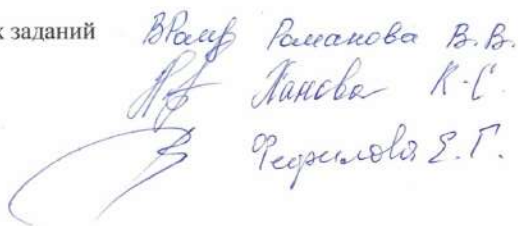 к заданий Романова В.В.
Панова К.С.
Фефилова Е.Г.